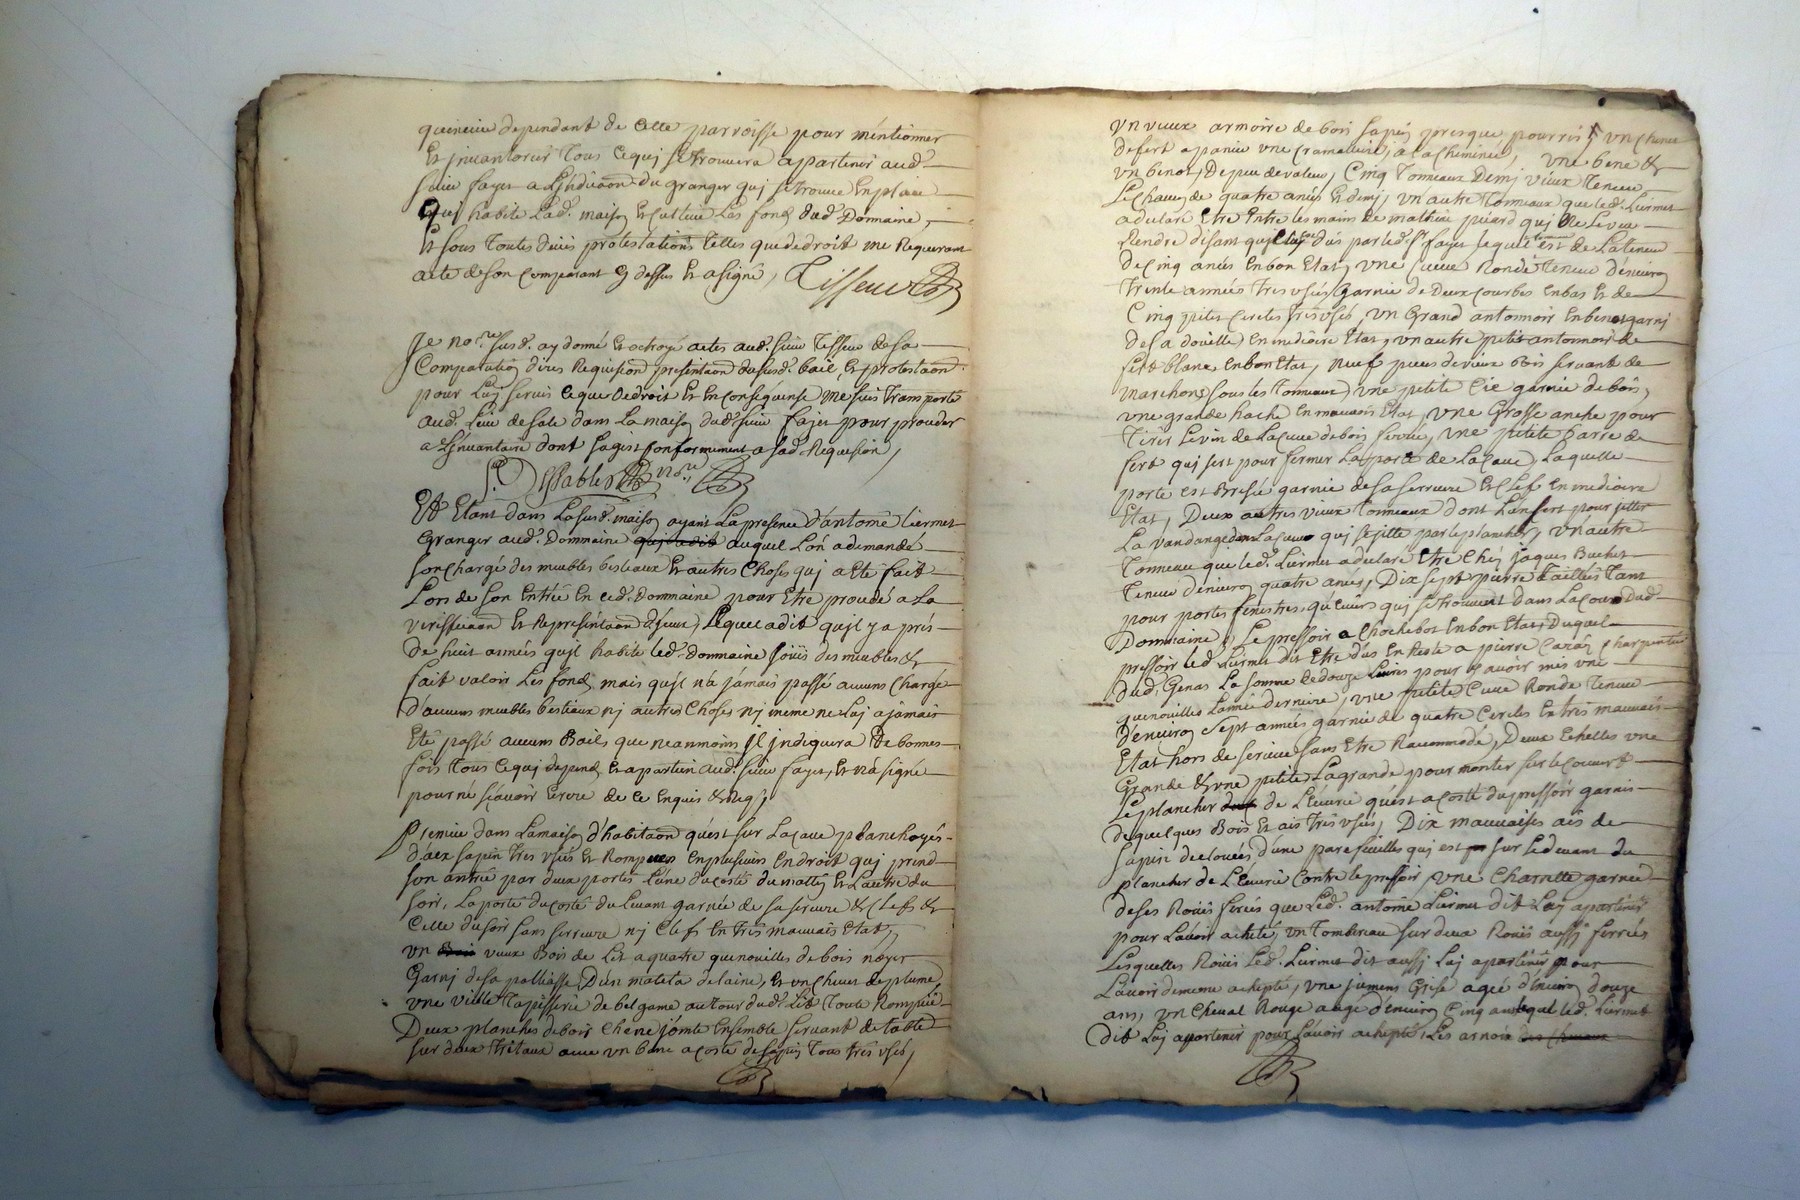 dependant de cette parroisse pour mentionner
Et jnuantorier Tous ce quj se trouuera apartenir aud.
sieur fayet a du granger quj se trouue En place
Quj habite Lad. maison Et cultiue Les fond dud. Dommaine,
Et sous Toutes dittes protestations Telles que de droit me Requerant
acte de son comparant cy dessus Et a signé, Tisseur
Je no.re susd. ay donné Et octroyé actes aud. sieur Tisseur de sa
Comparution dires Requision presentaon du susd. bail, Et protestaon
pour Luy seruir ce que de droit Et En consequense me suis Transporté
aud. Lieu de sale dans La maison dud. sieur fajet pour proceder
a L'jnuantaire dont s'agist conformement a sad. Requesion,
no.re
Et Etant dans La susd. maison ayant La presence d'antoine Liermet
Granger aud. Dommaine auquel L'on a demandé
son chargé des meubles bestiaux Et autres choses quj a Eté fait
Lors de son Entrée En ced. Dommaine pour Etre procedé a La
veriffication Et Represintaon d'jceux, Lequel a dit qu'jl y a prés
de huit années qu'jl habite led. dommaine joüis des meubles &
fait valoir Les fond, mais qu'jl n'a jamais passé aucuns chargé
d'aucuns meubles bestiaux nj autres choses nj meme ne Luj a jamais
Eté passé aucuns Bails que neanmoins jl jndiquera de bonnes
fois Tous ce quj depend Et apartien aud. sieur fayet, Et n'a signé
pour ne sçauoir Ecrire de ce Enquis & Req.
Premier dans La maison d'habitaon qu'est sur La caue planchoyés
d'aix sapin Tres vsés Et Rompues En plusieurs Endroit quj prend
son antrée par deux portes L'une du costé du mattin Et L'autre du
soir, La porte du costé du Leuant garnie de sa serrure & Clefs &
Celle du soir sans serrure nj Clefs En Tres mauuais Etat,
vn vieux Bois de Lit a quatre quenouilles de bois noyer
Garnj de sa palliasse, D'un matela de Laine, Et vn cheuet de plume,
vne vielle Tapisserie de belgame autour dud. Lit Toute Rompüe
Deux planches de bois chene jointe Ensemble seruant de Table
sur deux Tretaux auec vn banc a costé de sapin Tous tres vsés,
vn vieux armoire de bois sapin presque pourris, vn chenet
de fert vne cramaliere a La cheminée, vne bene &
vn benot, De peu de valeur, Cinq Tonneaux Demj vieux Teneur
Le chacun de quatre anés Et demj, vn autre Tonneaux que led. Liermet
a declaré Etre Entre les mains de mathieu piard quj Ne Le veut
Rendre disant qu'jl Luj est dus par led. s.r fayet Lequel est de La teneur
de Cinq anés En bon Etat, vne Cuue Ronde Teneur d'enuiron
Trente années Tres vsés, Garnie de Deux courbes En bas Et de
Cinq petits Cercles Tres vsés, vn Grand antonnoir En benot garnj
de sa doüille En mediocre Etat, vn autre petit antonnoir de
fert blanc En bon Etat, Neuf pieces de vieux bois seruant de
marchons sous les Tonneaux, vne petite Cie garnie de bois,
vne grande hache En mauuais Etat, vne Grosse anche pour
Tirer Le vin de La cuue de bois ferrée, vne petite barre de
fert quj sert pour fermer La porte de La Caue, Laquelle
porte est Brisée garnie de sa serrure Et Clef En mediocre
Etat, Deux autres vieux Tonneaux dont L'un sert pour jetter
La vandange dans La cuue quj se jette par le plancher, vn autre
Tonneau que led. Liermet a declaré Etre Chéz jaques Buchet
Teneur d'enuiron quatre anés, Dix sept pierre Taillées Tant
pour portes fenestres, quj se trouuent dans La Cour Dud.
Dommaine, Le pressoir a Chochebot En bon Etat, Duquel
pressoir led. Liermet dit Etre dus En Reste a pierre charpentier
dud. Genas La somme de douze Liures pour j auoir mis vne
quenouilles L'année derniere, vne petite Cuue Ronde Teneur
d'enuiron Sept années garnie de quatre Cercles En tres mauuais
Etat hors de seruice sans Etre Racommodé, Deux Echelles vne
Grande & vne petite, La grande pour monter sur le Couuert
Le plancher de L'ecurie qu'est a costé du pressoir garnis
de quelques Bois Et ais Tres vsés, Dix mauuaises ais de
sapin declouées d'une parefeuilles quj est sur Le deuant du
plancher de L'ecurie contre le pressoir, vne Charrette garnie
de ses Roües ferrés que Led. antoine Liermet dit Luj apartenir
pour L'auoir acheté, vn Tombereau sur deux Roües aussj ferrées
Lesquelles Roües Led. Liermet dit aussj Luj apartenir pour
L'auoir de meme achepté, vne jument Grise agée d'enuiron douze
ans, vn Cheual Rouge aagé d'enuiron Cinq ans Lequel led. Liermet
dit Luj appartenir pour L'auoir achepté, Les arnois